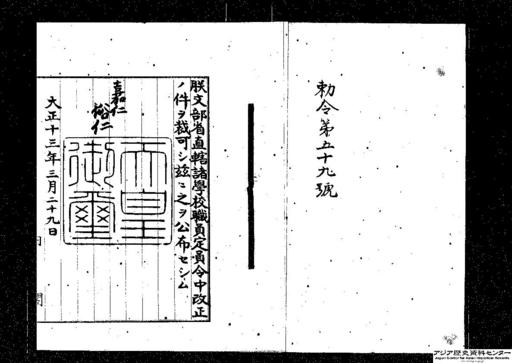 勅令第五十九號
朕文部省直轄諸學校職員定員令中改正
ノ件ヲ裁可シ茲ニ之ヲ公布セシム
嘉仁
裕仁
天皇
御璽
大正十三年三月二十九日
アジア歴史資料センター
Japan Center for Asian Historical Records